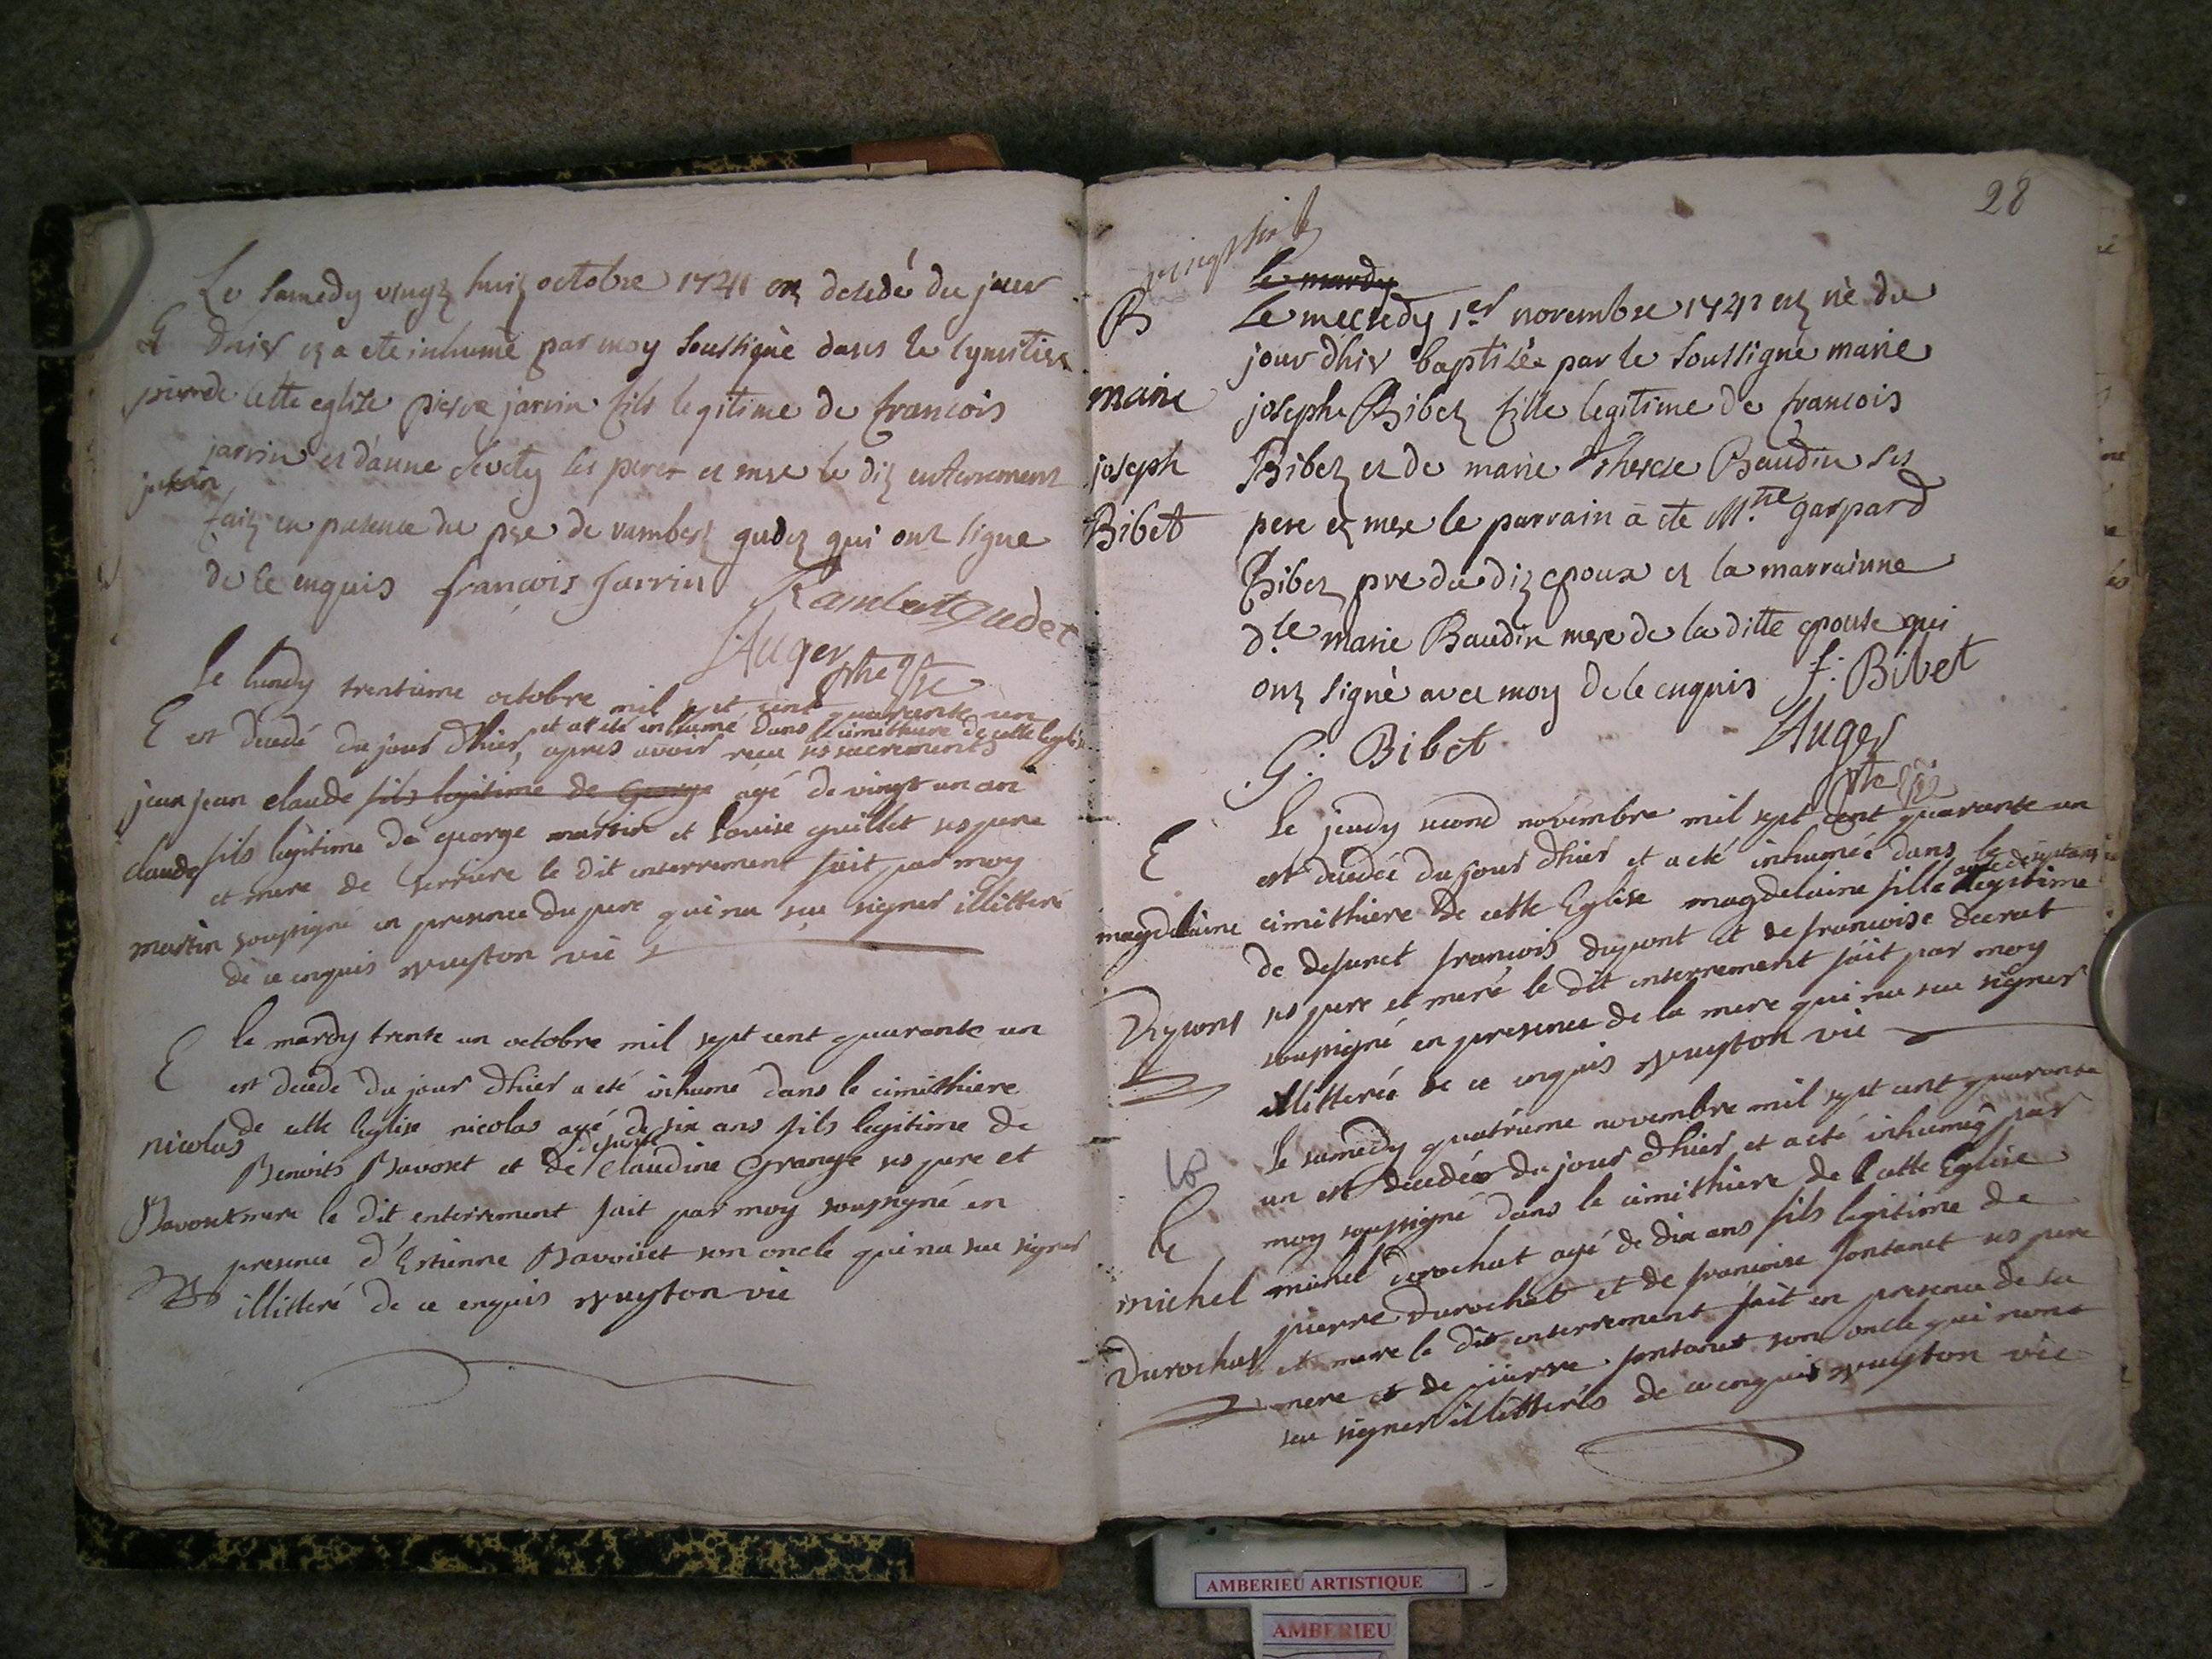 Le samedy vingt huit octobre 1741 est decedé du jour
E d'hier et a eté inhumé par moy soussigné dans le cymetiere
pierre de cette eglise pierre jarrin fils legitime de francois
jarrin jarrin et d'anne ses pere et mere le dit enterrement
fait en presence du pere de rambert gudet qui ont signé
de ce enquis françois Jarrin Rambert gudet
Auger
Le lundy trentieme octobre mil sept cent quarante un
et at eté inhumé dans le cimithiere de cette Eglise
E est decedé du jour d'hier, apres avoir recu ses sacrements
jean jean claude fils legitime de George agé de vingt un an
claude fils legitime de george martin et Louise guillet ses pere
et mere de serriere le dit enterrement fait par moy
martin soussigné en presence du pere qui na sçu signer illitteré
de ce enquis vic
le mardy trente un octobre mil sept cent quarante un
E est decedé du jour d'hier a eté inhumé dans le cimithiere
nicolas de cette Eglise nicolas agé de six ans fils legitime de
defunte
Benoits Bavoset et de claudine Grange ses pere et
Bavoset mere le dit enterrement fait par moy soussigné en
presence d'Estienne Bavoiset son oncle qui na sceu signer
illitteré de ce enquis vic
28
vingt huit
le mardy
B Le mecredy 1er novembre 1741 est né du
jour d'hier baptisée par le soussigné marie
marie joseph Bibet fille legitime de francois
joseph Bibet et de marie Therese Baudin ses
Bibet pere et mere le parrain a ete Mtre gaspard
Bibet pere du dit epoux et la marrainne
dle marie Baudin mere de la ditte epouse qui
ont signé avec moy de ce enquis f: Bibet
G: Bibet Auger
Le jeudy second novembre mil sept cent quarante un
E est decedée du jour d'hier et a eté inhumée dans le
agée de sept ans
magdelaine cimithiere de cette Eglise magdelaine fille legitime
de defunct francois dupont et de francoise decrut
Dupont ses pere et mere le dit enterrement fait par moy
soussigné en presence de la mere qui na sceu signer
illitterée de ce enquis vic
le samedy quatrieme novembre mil sept cent quarante
un est decedé du jour d'hier et a eté inhumé par
E moy soussigné dans le cimithiere de cette Eglise
michel michel durochat agé de dix ans fils legitime de
pierre Durochat et de francoise fontanet ses pere
Durochat et mere le dit enterrement fait en presence de sa
mere et de pierre fontanet son oncle qui nont
sceu signer illitterés de ce enquis vic
AMBERIEU ARTISTIQUE
AMBERIEU